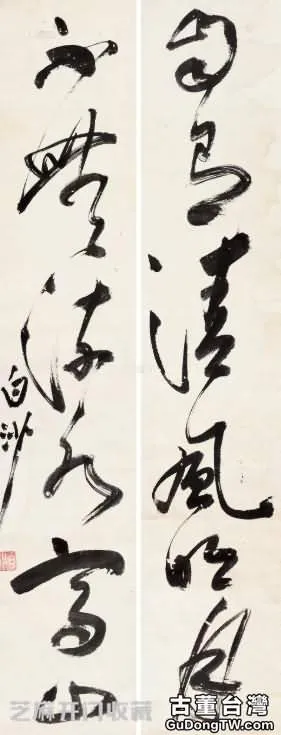 自有清風明月
不無流水高山
白沙
芝麻开门收藏
古董台灣
GuDongTW.com